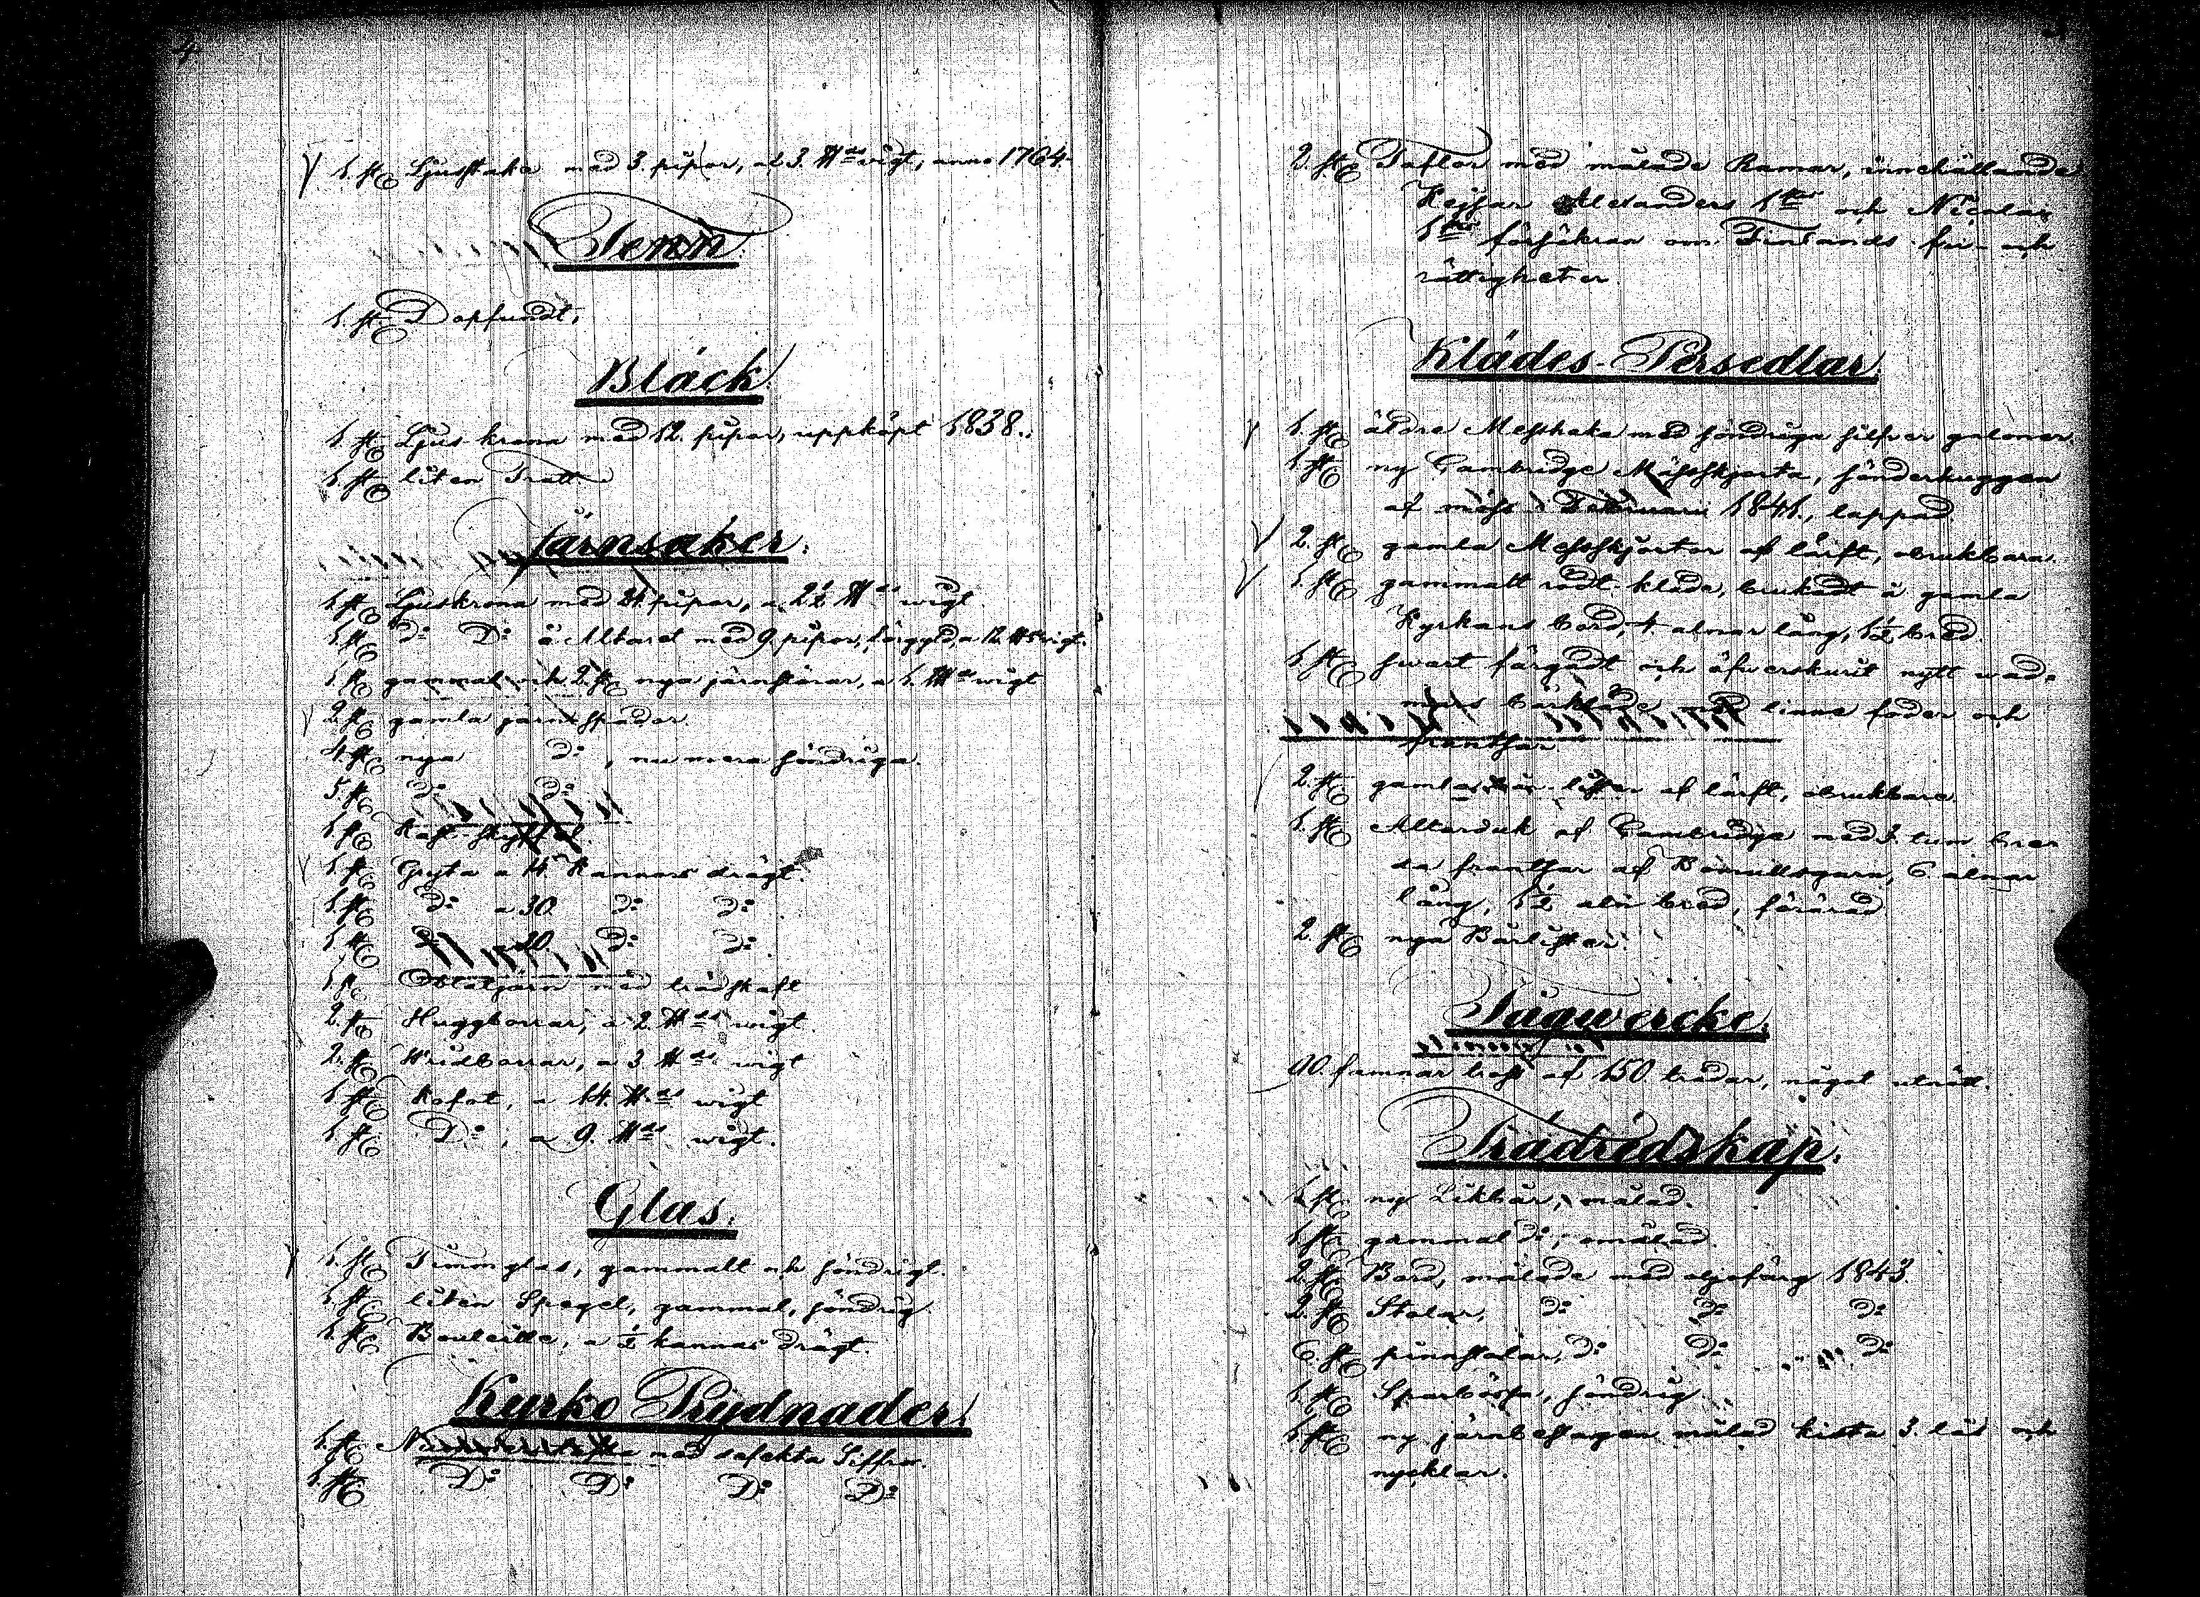 4
1 st Ljusstake med 3. pipor, a 3. ℔ wigt, anno 1764.
Tenn.
1. st Dopfundt.
Bläck
1 st Ljus krona med 12. pipor, uppköpt 1838.
1 st liten Tratt
Järnsaker.
1. st Ljuskrona med 24. pipor, a 22 ℔ wigt
1. st d:o D:o å Altaret med 9. pipor, förgyld, a 12 ℔ wigt.
1 st gammal och 2. st nya järnstörar, a 1. wigt
2. st gamla järnspador
4. st nya d:o, nu mera söndriga.
5. st d:o d:o
1. st
1. st Gryta a 14 Kannors drägt.
1. st d:o a 30 d:o d:o
1 st 20. d:o d:o
1 st Oblatjärn med trädskaft
2. st Huggborrar, a 2 ℔ wigt
2. st Wridborrar, a 3 ℔ wigt
1 st Kofot, a 14. ℔ wigt
1 st D:o, a 9. ℔ wigt.
Glas.
1. st Timmglas, gammalt och söndrigt.
1. st liten Spegel, gammal, söndrig
1. st Bouteille, a ½ kannas drägt.
Kyrko Prydnader.
1. st med Siffror.
1. st D:o D:o D:o D:o
2. st Taflor med målade Ramar, innehållande
Kejsar Alexanders 1stes och Nicolai
1stes försäkran om Finlands fri- och
rättigheter.
Klädes-Persedlar.
1. st äldre Messhake med söndriga silfver galoner.
1 st ny Cambridge Mässkjorta, sönderhuggen
af möss i Februari 1841., lappad.
2. st gamla Messkjortor af lärft, obrukbara.
1. st gammalt rödt kläde, brukadt å gamla
Kyrkans bord, 4. alnar lång, 1½ bred.
1 st swart färgadt och öfwerskurit nytt wad-
mals bårkläde med linne foder och
frantsar
2. st gamla af lärft, obrukbare.
1. st Altarduk af Cambridge med 3. tum bre-
da frantsar af Bomullsgarn, 6 alnar
lång, 1½ aln bred, förärad
2. st nya Bårlister.
Tågwercke.
90. famnar tross af 150. trådar, något utnött.
Trädredskap.
1 st ny Likbår, målad.
1 st gammal d:o, omålad
2. st Bord, målade med oljefärg 1843.
2. st Stolar, d:o d:o d:o
6. st pinnstolar, d:o d:o d:o
1. st Sparbössa, söndrig
1 st ny järnbeslagen målad kista 3. lås och
nycklar.